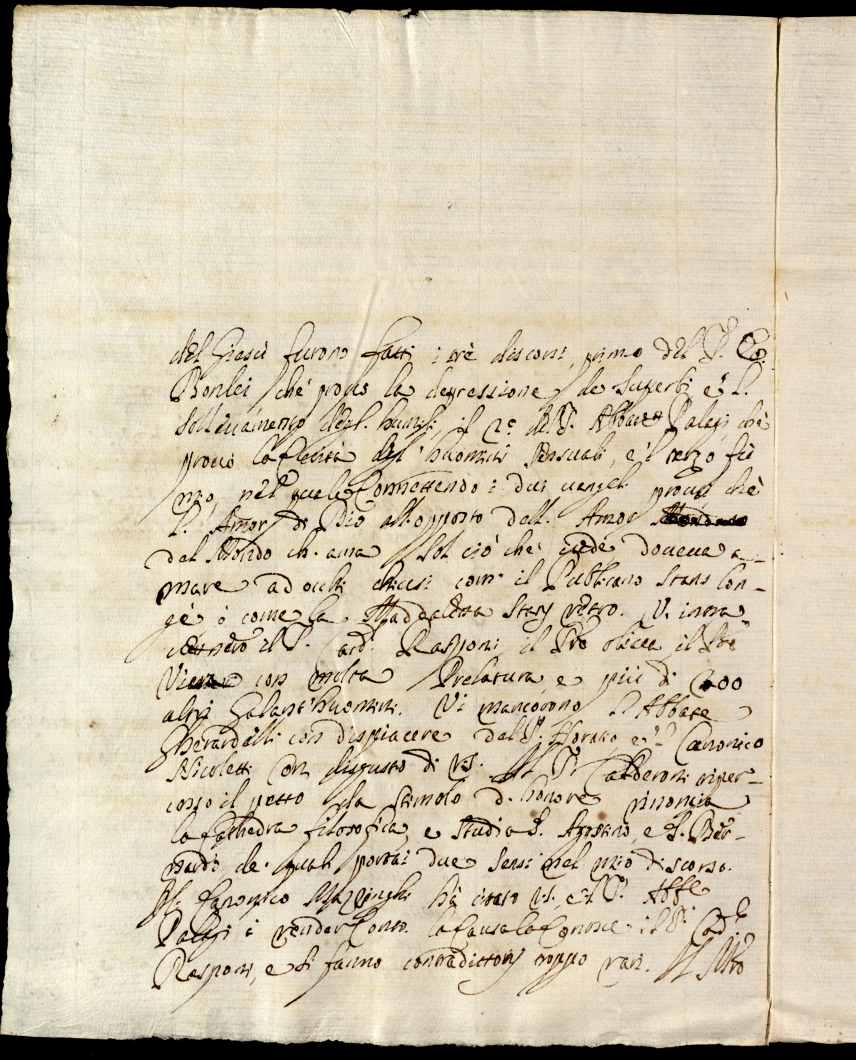 del Giesù furono fatti i trè discorsi, primo del S. Co.
Bonlei, che prouò la depressione de Superbi e l.
solleuamento degl. humili il 2.º del S. Abbate Palagi, che
prouò la felicità degl'huomini sensuali, e'l terzo fù
mio, nel quale connettendo i dui uangeli prouai che
l. Amor di Dio all'opposto dell. Amor
del Mondo ch. ama sol ciò che uede doueua a-
mare ad occhi chiusi com' il Publicano stans lon-
gè ò come la Maddalena stans retro. V. inter-
uennero il S. Card. Rasponi, il Pre Oliua il Pre
Vieira con molta Prelatura, e più di 200
altri Galant'huomini. Vi mancorono l'Abbate
Gherardelli con dispiacere del S. Horatio e'l Canonico
Nicoletti con disgusto di V.S. Il S. Calderoni riper-
cosso il petto da stimolo d. honore rinoncia
la Cathedra filosofica, e studia S. Agostino, e S. Ber-
nardo de quali portai due sensi nel mio discorso.
Il S. Canonico Mazzinghi hà citato V.S. e'l S. Abbe
Palagi à render conto. la Causa la Conosce il S. Card.
Rasponi, e si fanno contradittorij troppo rari. Il Pre